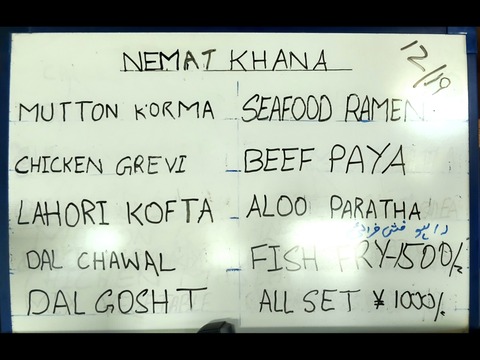 NEMAT KHANA
12/19
MUTTON KORMA
CHICKEN GREVI
LAHORI KOFTA
DAL CHAWAL
DAL GOSHT
SEAFOOD RAMEN
BEEF PAYA
ALOO PARATHA
فش فرائی
FISH FRY-1500/-
ALL SET ¥ 1000/-